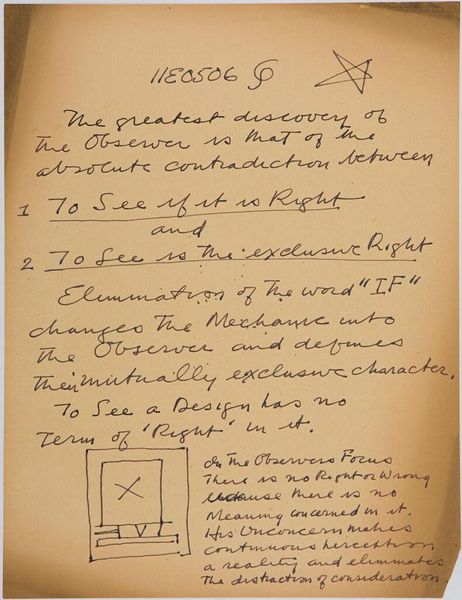 11E0506
The greatest discovery of
the Observer is that of the
absolute contradiction between
1 To See if it is Right
and
2 To See is the exclusive Right
Elimination of the word "IF"
changes the Mechanic into
the Observer and defines
their mutually exclusive character.
To See a Design has no
Term of 'Right' in it.
In the Observers Focus
There is no Right or Wrong
because there is no
Meaning concerned in it.
His Unconcern makes
continuous perception
a reality and eliminates
the distraction of consideration